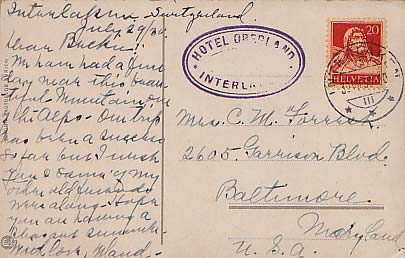 Interlaken, Switzerland.
July 29/30.
Dear Buckie!
We have had a fine
day near this beau-
tiful Mountain in
the Alps. Our trip
has been a success
so far but I wish
you & some of my
other old friends
were along. Hope
you are having a
pleasant summer.
With love, Maud-
HOTEL OBERLAND
INTERLAKEN
20
HELVETIA
III
Mrs. C. M. Forrest
2605 Garrison Blvd.
Baltimore
Maryland
U.S.A.